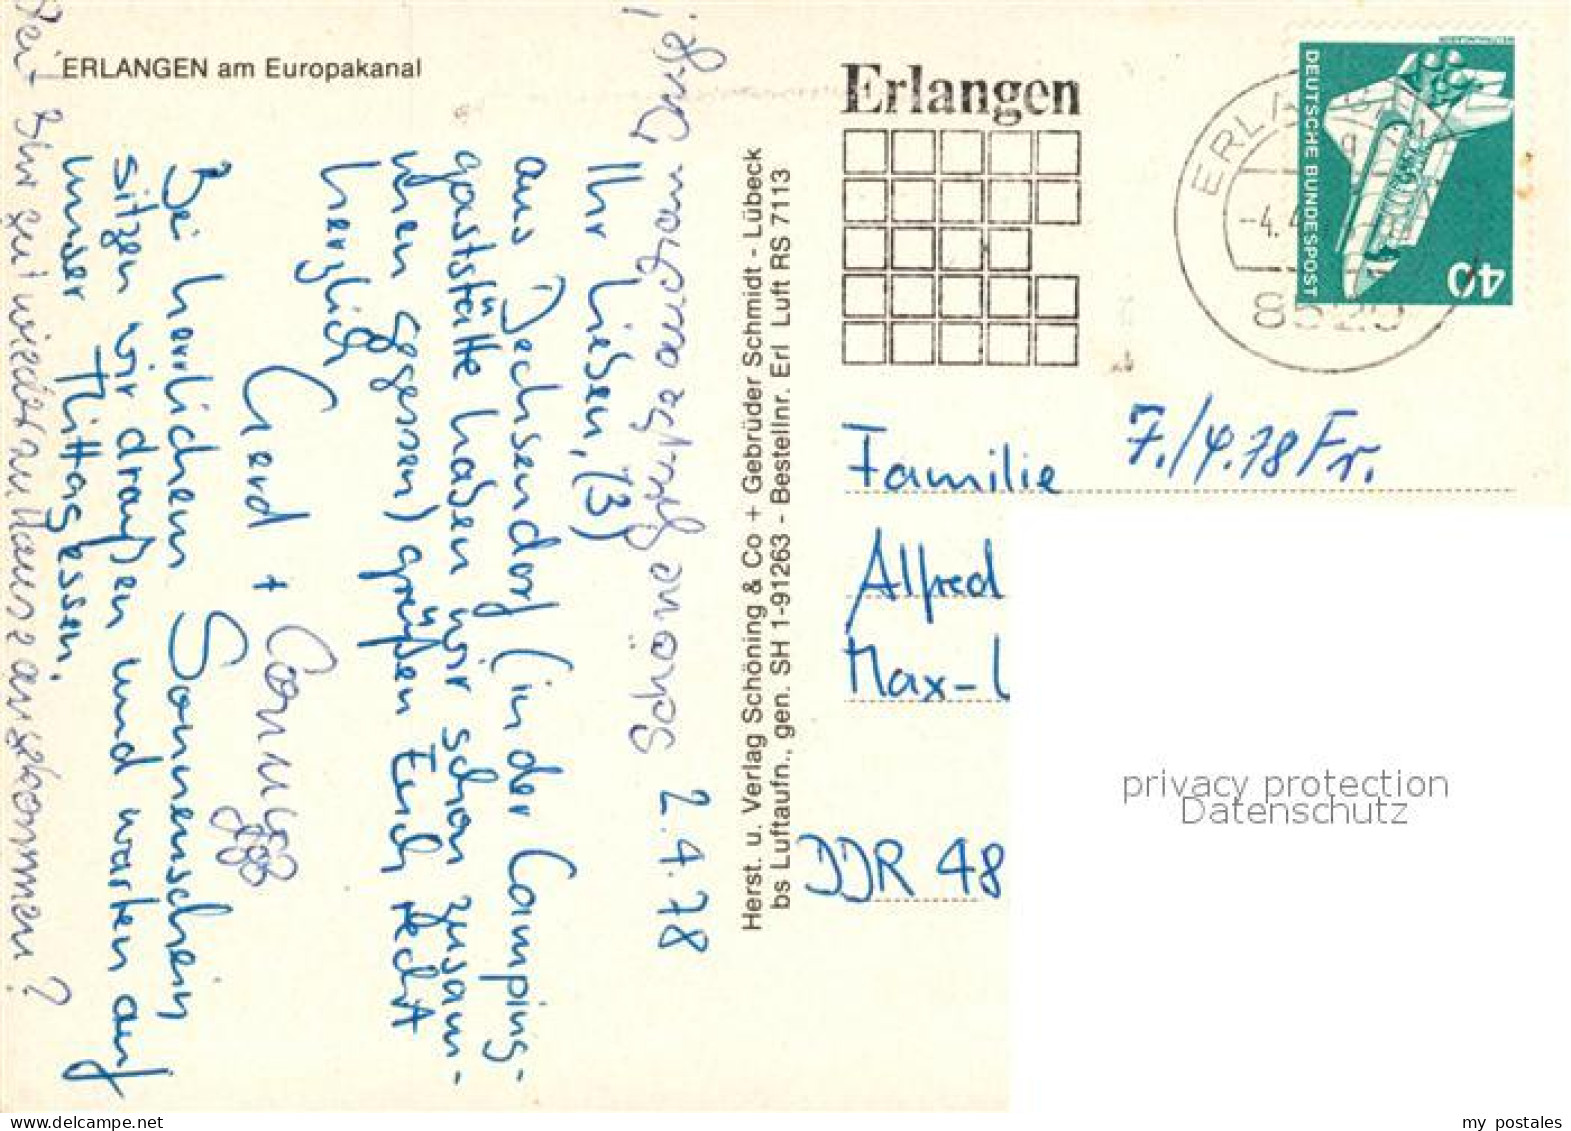 ERLANGEN am Europakanal
Erlangen
DEUTSCHE BUNDESPOST
40
-4.4
8520
2.4.78
Ihr Lieben, (3)
aus Dechsendorf (in der Camping-
gaststätte haben wir schon zusam-
men gegessen) grüßen Euch recht
herzlich
Gerd + Cornelia
Bei herrlichem Sonnenschein
sitzen wir draußen und warten auf
unser Mittagessen.
Seid Ihr gut wieder zu Hause angekommen?
Schöne Grüße auch an
Herst. u. Verlag Schöning & Co + Gebrüder Schmidt - Lübeck
bs Luftaufn., gen. SH 1-91263 - Bestellnr. Erl Luft RS 7113
7./4.78 Fr.
Familie
Alfred
Max-
DDR 48
privacy protection
Datenschutz
delcampe.net
my_postales